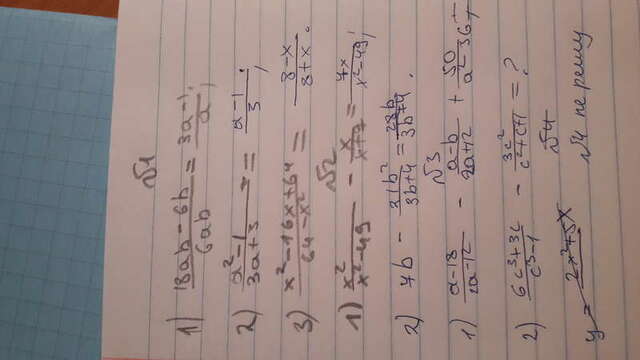 №1
1) 18ab-6b/6ab = 3a-1/a;
2) a²-1/3a+3 = a-1/3;
3) x²-16x+64/64-x² = 8-x/8+x.
№2
1) x²/x²-49 - x/x+7 = 7x/x²-49;
2) 4b - /3b+4 = /3b+4.
№3
1) - + 50/a²-36
2) 6c³+3c/c³-1 - 3c²/c²+c+1 = ?
№4
y = 2x²+5x
№4 не решу